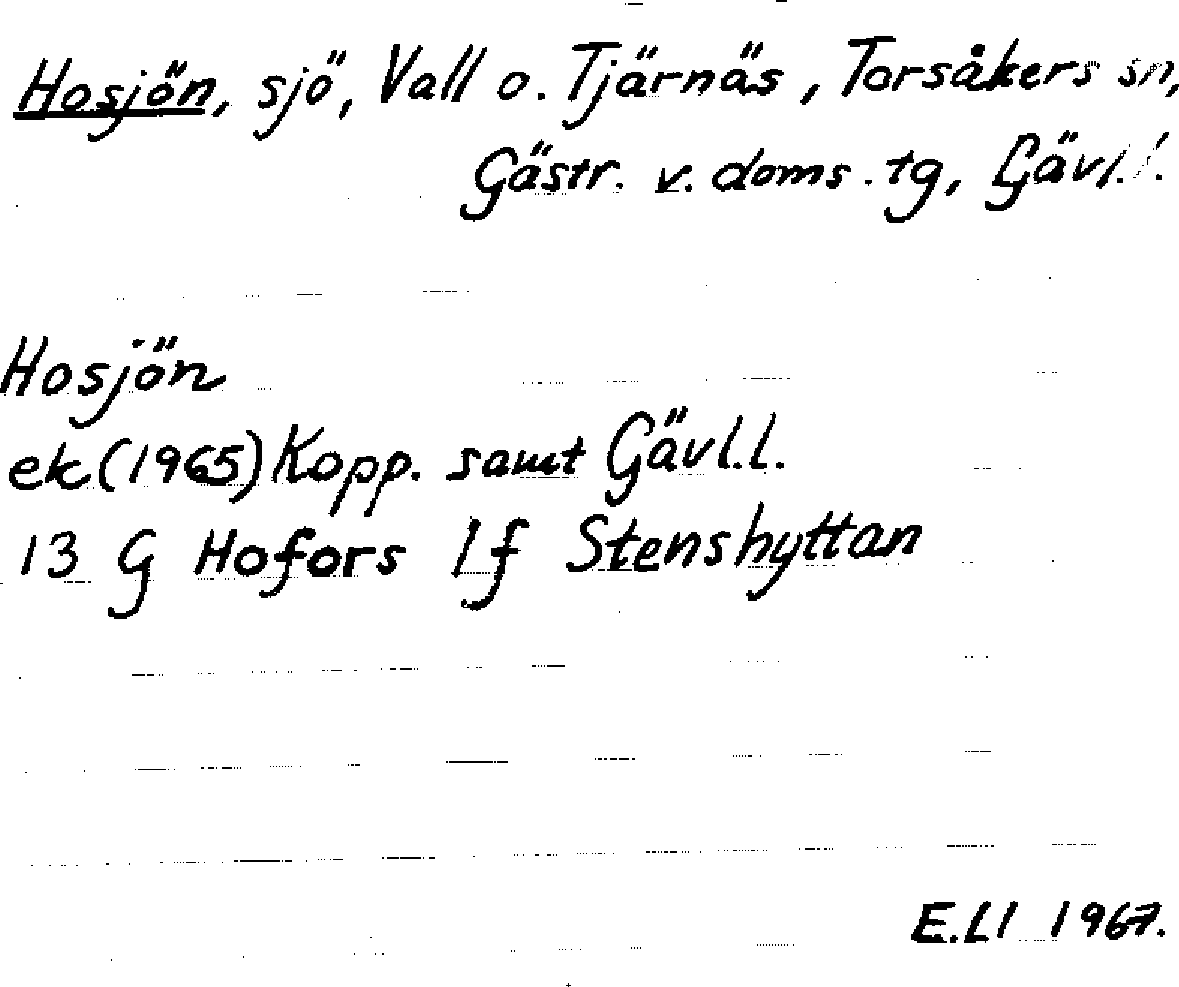 Hosjön, sjö, Vall o. Tjärnäs, Torsåkers sn,
Gästr. v. doms. tg, Gävl.l.
Hosjön
ek (1965) Kopp. samt Gävl.l.
13 G Hofors 1f Stenshyttan
E.Ll 1967.